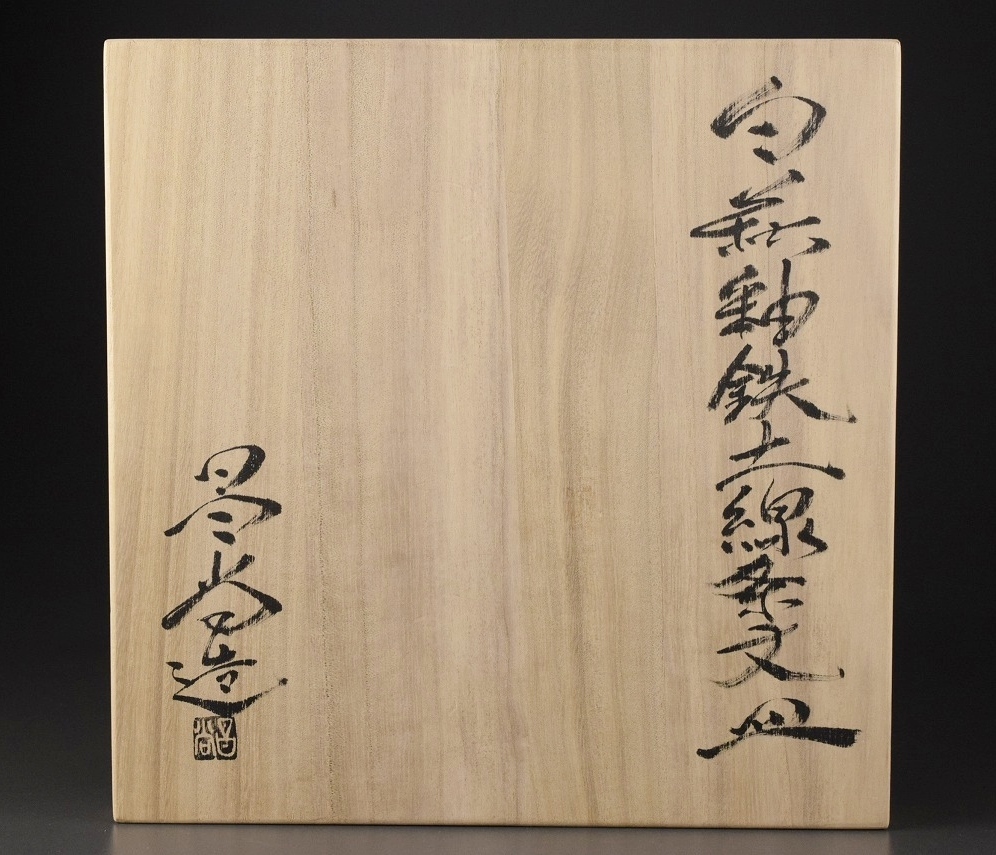 白萩釉鉄土線条文皿
昌尚造
昌尚